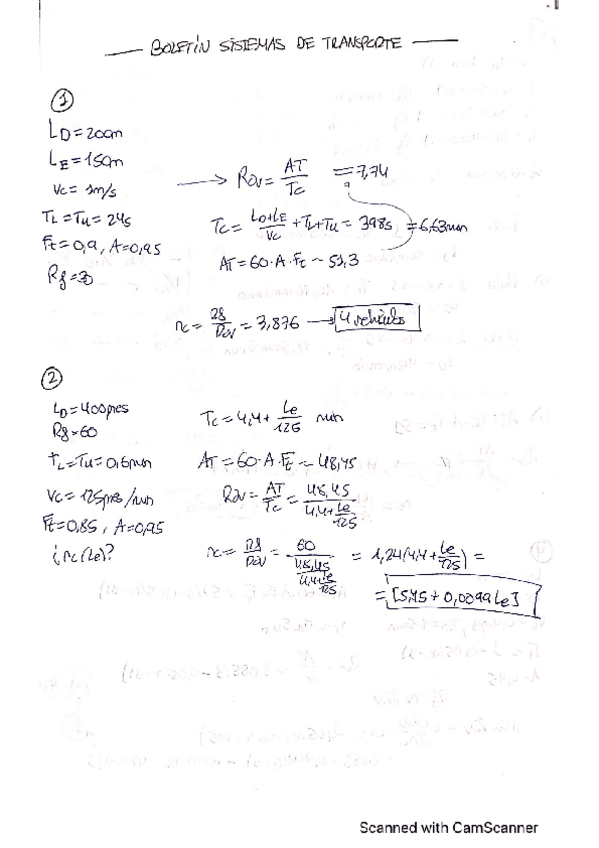 BOLETÍN SISTEMAS DE TRANSPORTE
①
LD = 200m
LE = 150m
Vc = 1m/s
TL = Tu = 24s
Ft = 0,9, A = 0,95
Rf = 30
→ Rdv = AT/Tc = 7,74
Tc = (LD+LE)/Vc + TL + Tu = 398s = 6,63min
AT = 60·A·Ft ~ 51,3
nc = Rf/Rdv = 3,876 → 4 vehículos
②
LD = 400pies
Rf = 60
tL = Tu = 0,6min
Vc = 125pies/min
Ft = 0,85, A = 0,95
¿nc(Le)?
Tc = 4,4 + Le/125 min
AT = 60·A·Ft ~ 48,45
Rdv = AT/Tc = 48,45/(4,4 + Le/125)
nc = Rf/Rdv = 60/(48,45/(4,4 + Le/125)) = 1,24(4,4 + Le/125) =
= [5,45 + 0,0099Le]
Scanned with CamScanner